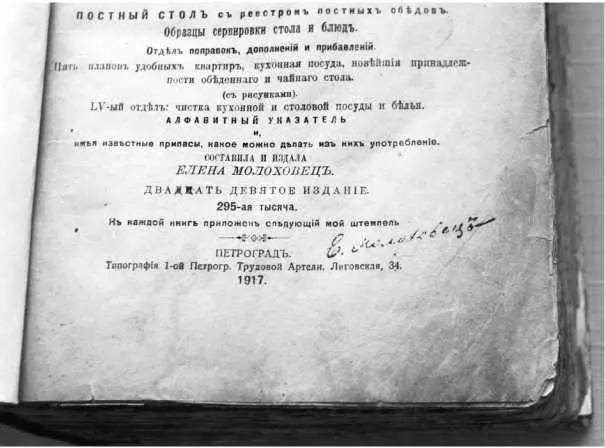 ПОСТНЫЙ СТОЛЪ съ реестромъ постныхъ обѣдовъ.
Образцы сервировки стола и блюдъ.
Отдѣлъ поправокъ, дополненій и прибавленій.
Пять плановъ удобныхъ квартиръ, кухонная посуда, новѣйшія принадлеж-
ности обѣденнаго и чайнаго стола.
(съ рисунками).
LV-ый отдѣлъ: чистка кухонной и столовой посуды и бѣлья.
АЛФАВИТНЫЙ УКАЗАТЕЛЬ
и,
имѣя извѣстные припасы, какое можно дѣлать изъ нихъ употребленіе.
СОСТАВИЛА И ИЗДАЛА
ЕЛЕНА МОЛОХОВЕЦЪ.
ДВАДЦАТЬ ДЕВЯТОЕ ИЗДАНІЕ.
295-ая тысяча.
Къ каждой книгѣ приложенъ слѣдующій мой штемпель
Е. Молоховецъ
ПЕТРОГРАДЪ.
Типографія 1-ой Петрогр. Трудовой Артели. Лиговская, 34.
1917.